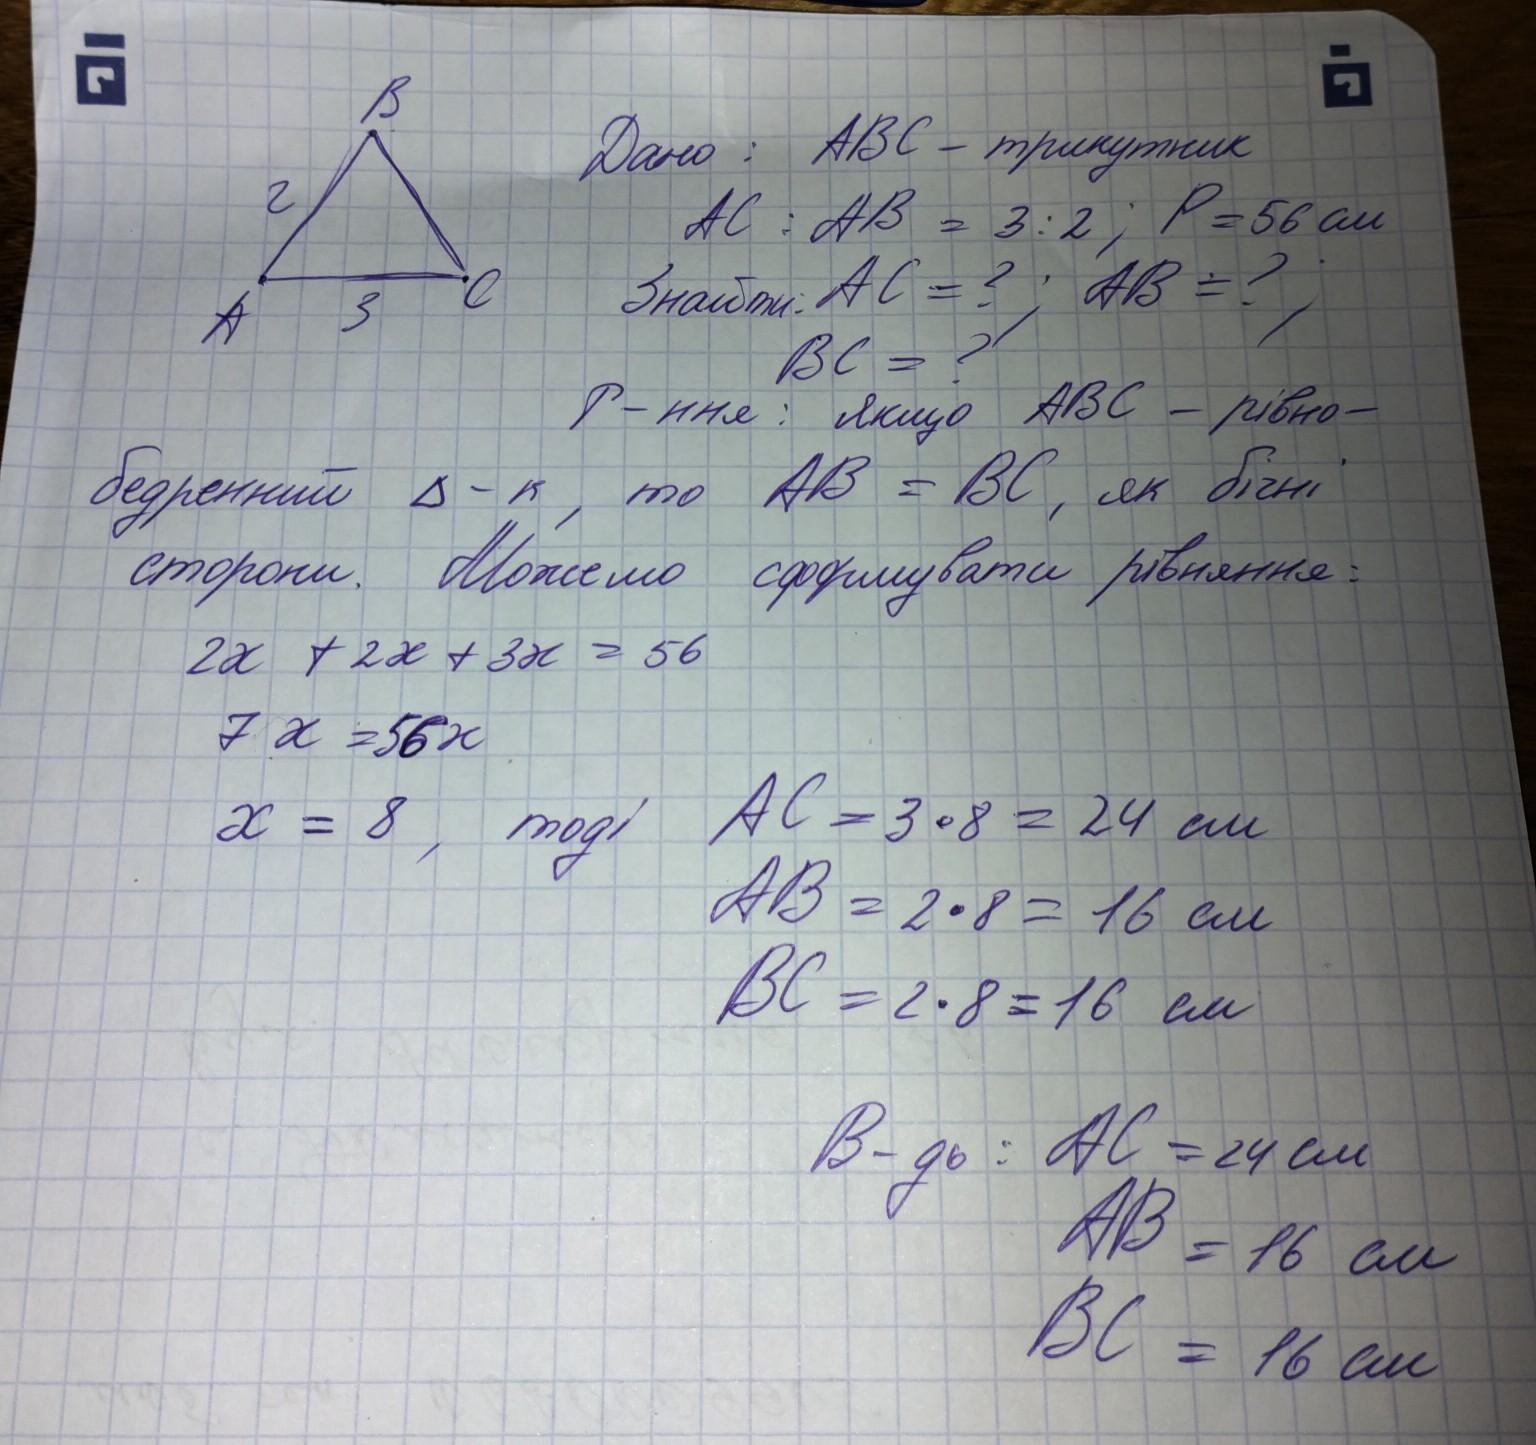 B
2
A
3
C
Дано: ABC – трикутник
AC : AB = 3:2; P = 56 см
Знайти: AC = ?; AB = ?;
BC = ?
Р-ння: якщо ABC – рівно-
бедренний Δ-к, то AB = BC, як бічні
сторони. Можемо сформувати рівняння:
2x + 2x + 3x = 56
7x = 56x
x = 8, тоді AC = 3•8 = 24 см
AB = 2•8 = 16 см
BC = 2•8 = 16 см
В-дь: AC = 24 см
AB = 16 см
BC = 16 см